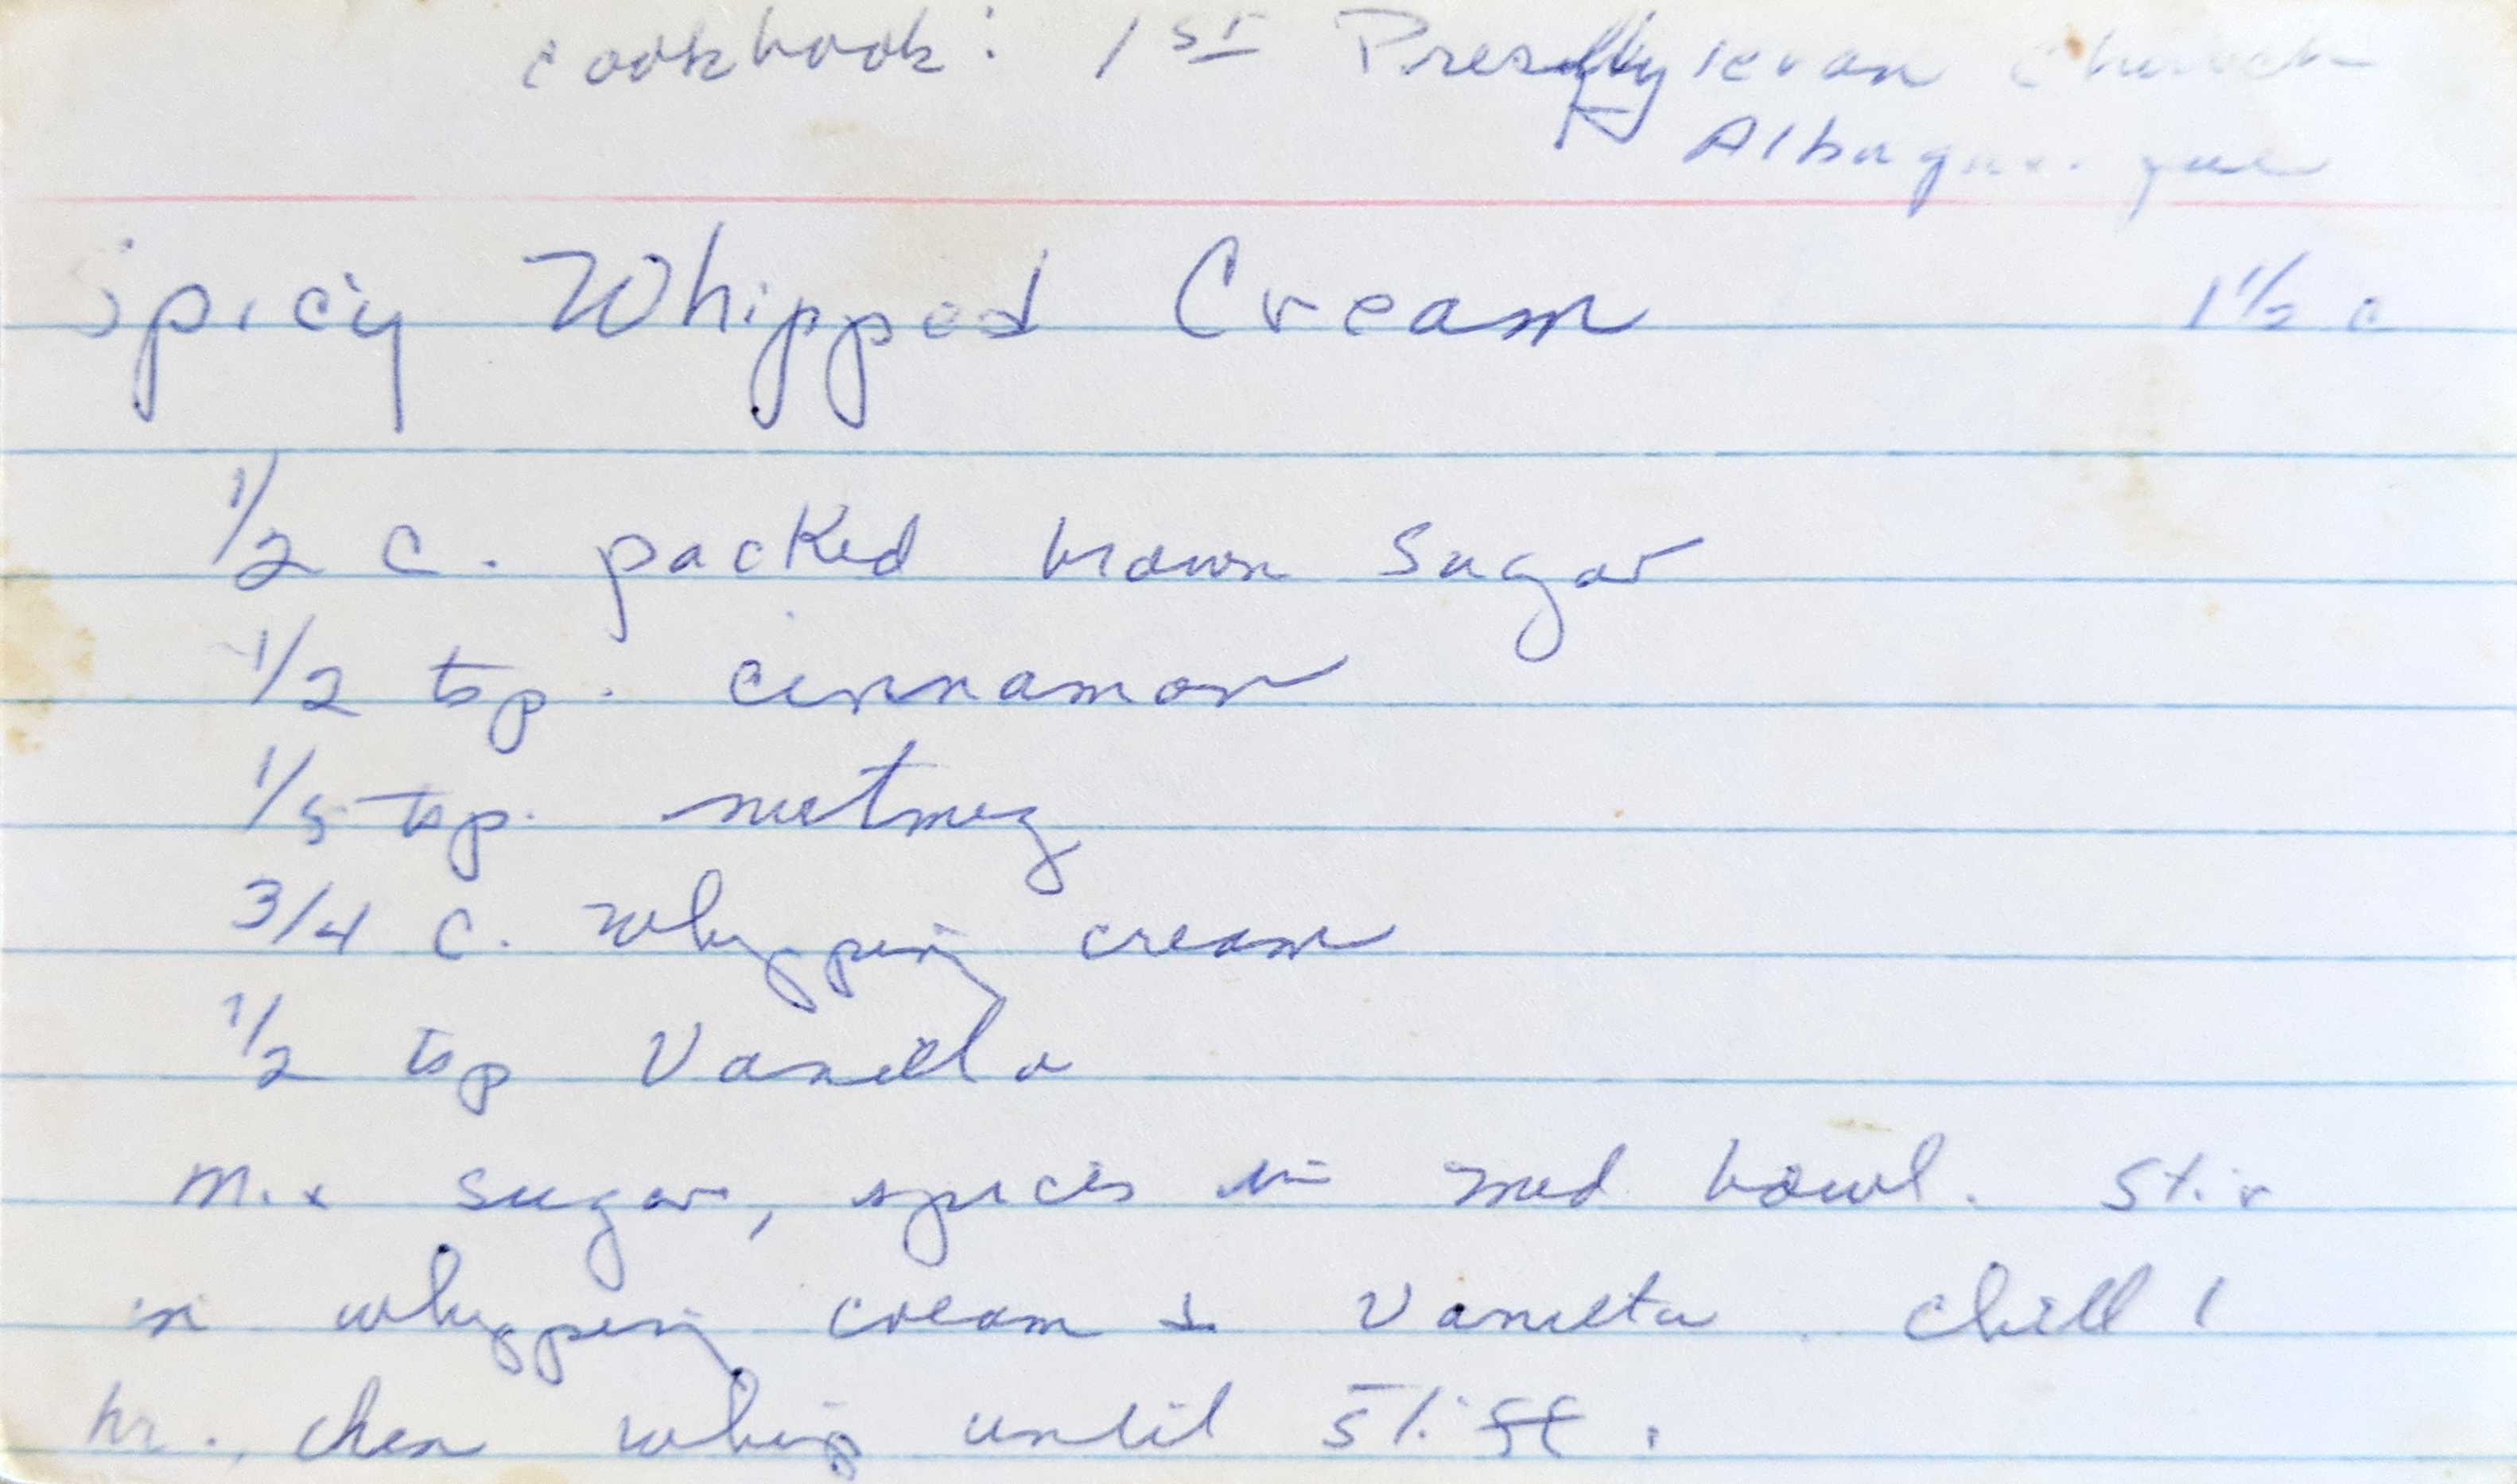 cookbook: 1st Presbyterian Church
Albuquerque
Spicy Whipped Cream 1 1/2 c
1/2 c. packed brown sugar
1/2 tsp. cinnamon
tsp. nutmeg
3/4 c. whipping cream
1/2 tsp Vanilla
Mix sugar, spices in med bowl. Stir
in whipping cream & Vanilla. chill 1
hr., then whip until stiff.